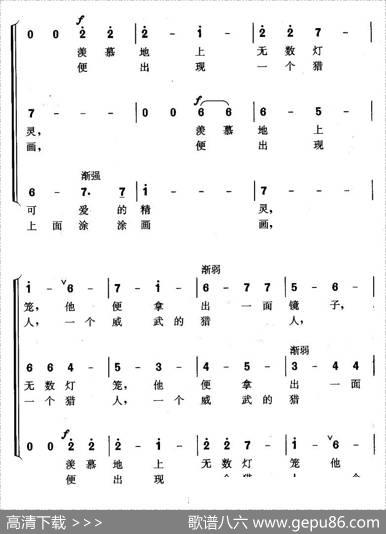 f
0 0 2 2 | 2 - i | 2 - 7 |
羡 慕 地 上 无 数 灯
便 出 现 一 个 猎
f
7 - - | 0 0 6 6 | 6 - 5 |
灵， 羡 慕 地 上
画， 便 出 现
渐强
6 - 7. 7 | i - - | 7 - - |
可 爱 的 精 灵，
上 面 涂 涂 画 画，
渐弱
i - ∨ 6 | 7 - i | 6 - 7 7 | 5 - 6 |
笼， 他 便 拿 出 一 面 镜 子，
人， 一 个 威 武 的 猎 人，
渐弱
6 6 4 | 5 - 3 | 4 - 5 | 3 - 4 4 |
无 数 灯 笼， 他 便 拿 出 一 面
一 个 猎 人， 一 个 威 武 的 猎
f
0 0 2 2 | 2 - i | 2 - 2 7 | i - ∨ 6 |
羡 慕 地 上 无 数 灯 笼 他
便 出 现
高清下载 >>> 歌谱八六 www.gepu86.com